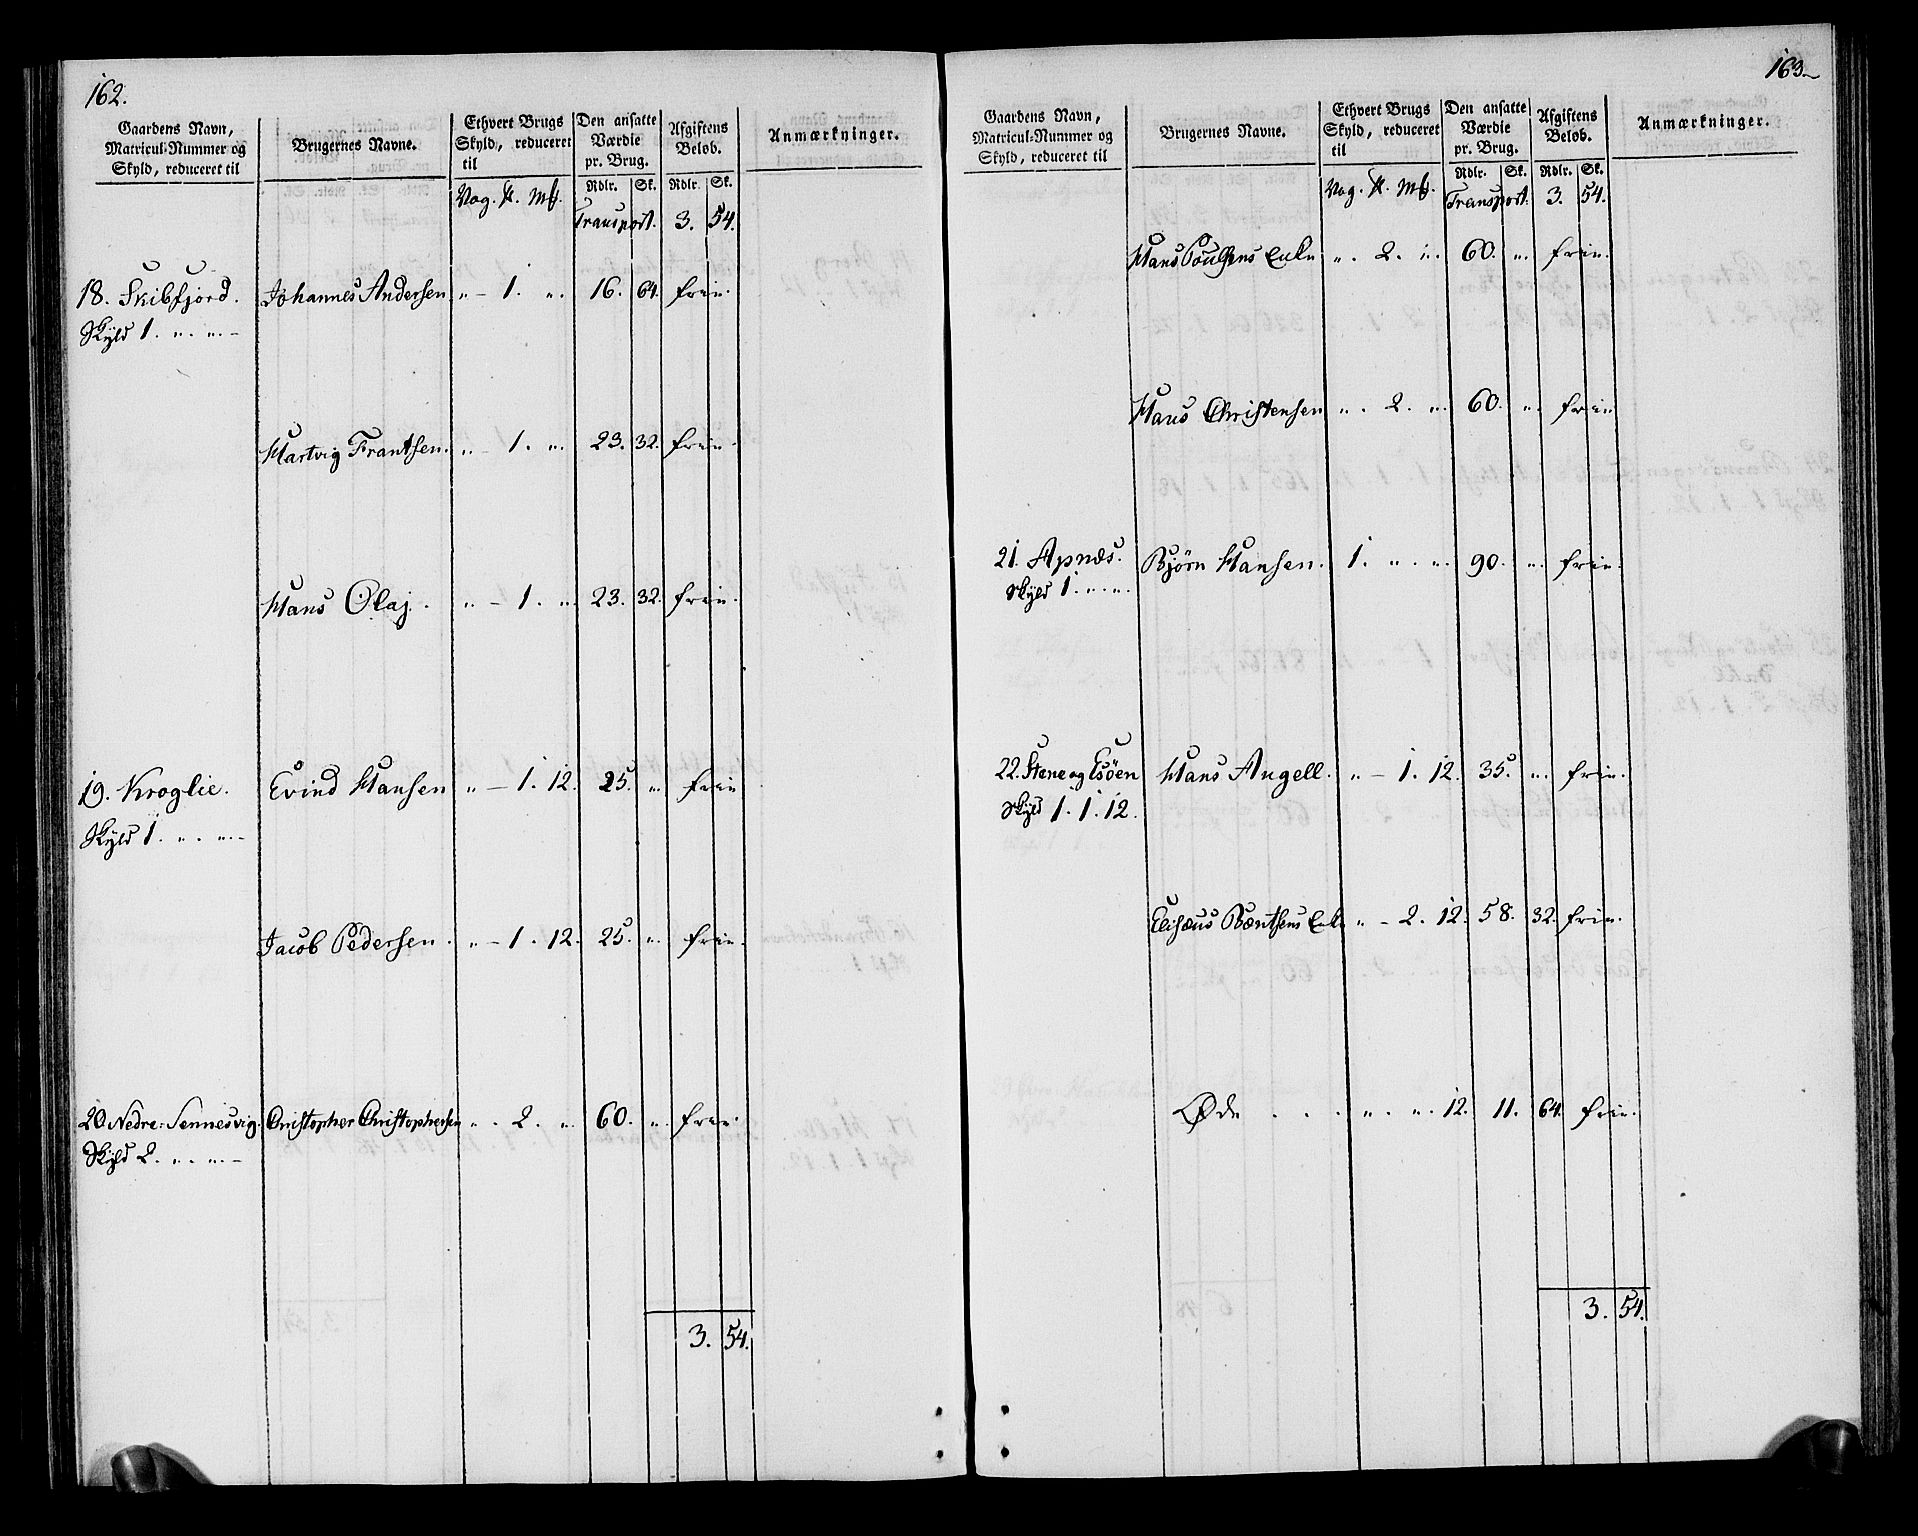 162.
Gaardens Navn, Matricul-Nummer og Skyld, reduceret til | Brugernes Navne. | Ethvert Brugs Skyld, reduceret til | Den ansatte Værdie pr. Brug. | Afgiftens Beløb. | Anmærkninger.
Vog. ℔. Mk. | Rdlr. | Sk. | Rdlr. | Sk.
Transport. | 3. | 54.
18. Skibfjord. | Johannes Andersen | „ – 1. „. | 16. | 64. | frie.
Skyld 1. „. „. –
Hartvig Frantsen. | „ – 1. „. | 23. | 32. | frie.
Hans Olaj. | „ – 1. „. | 23. | 32. | frie.
19. Kroglie. | Evind Hansen | „ – 1. 12. | 25. | „. | frie
Skyld 1. „. „. –
Jacob Pedersen. | „ – 1. 12. | 25. | „. | frie.
20 Nedre-Sennesvig. | Christopher Christophersen | „. 2. „. | 60. | „. | frie.
Skyld 2. „. „. –
3. | 54.
163
Gaardens Navn, Matricul-Nummer og Skyld, reduceret til | Brugernes Navne. | Ethvert Brugs Skyld, reduceret til | Den ansatte Værdie pr. Brug. | Afgiftens Beløb. | Anmærkninger.
Vog. ℔. Mk. | Rdlr. | Sk. | Rdlr. | Sk.
Transport. | 3. | 54.
Hans Poulsens Enke | „. 2. „. | 60. | „. | frie.
Hans Christensen | „. 2. „. | 60. | „. | frie
21. Apnæs. | Bjørn Hansen. | 1. „. „. | 90. | „. | frie.
Skyld 1. „. „.
22. Stene og Esøen | Hans Angell. | „ – 1. 12. | 35. | „. | frie.
Skyld 1. 1. 12.
Elisæus Bæntsens Enke | „ – 2. 12. | 58. | 32. | frie.
Øde | „. „. 12. | 11. | 64. | frie.
3. | 54.